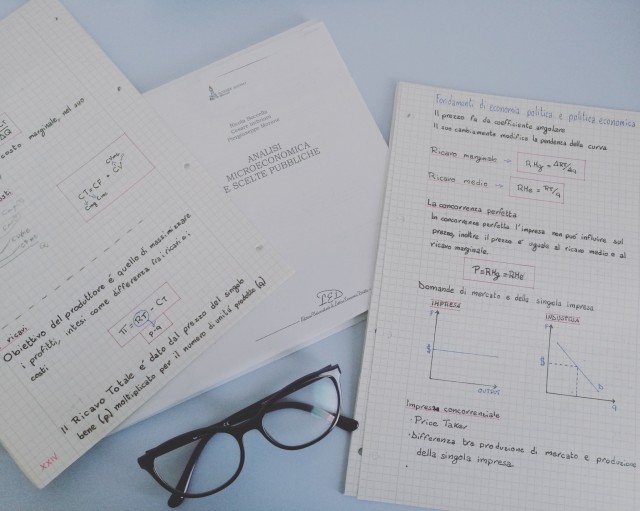 costo marginale, nel suo
CT = CF + CV
ricavi.
Obiettivo del produttore e' quello di massimizzare
i profitti, intesi come differenza fra i ricavi e i
costi
π = RT - CT
p·q
Il Ricavo Totale e' dato dal prezzo del singolo
bene (p) moltiplicato per il numero di unità prodotte (q)
XXIV
ANALISI
MICROECONOMICA
E SCELTE PUBBLICHE
LED
Fondamenti di economia politica e politica economica
Il prezzo fa da coefficiente angolare
Il suo cambiamento modifica la pendenza della curva
Ricavo marginale → RMg = ΔRT/Δq
Ricavo medio → RMe = RT/q
La concorrenza perfetta
In concorrenza perfetta l'impresa non può influire sul
prezzo, inoltre il prezzo e' uguale al ricavo medio e al
ricavo marginale.
P=RMg=RMe
Domande di mercato e della singola impresa
IMPRESA
INDUSTRIA
P
P
D
OUTPUT
q
Impresa concorrenziale
· Price Taker
· Differenza tra produzione di mercato e produzione
della singola impresa